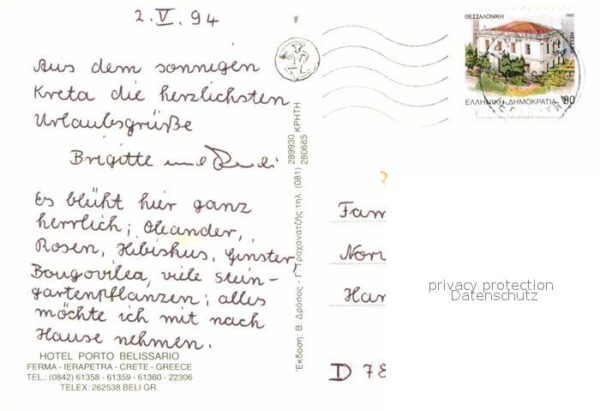 2. V. 94
Aus dem sonnigen
Kreta die herzlichsten
Urlaubsgrüße
Brigitte und Rudi
Es blüht hier ganz
herrlich; Oleander,
Rosen, Hibiskus, Ginster,
Bougovilea, viele Stein-
gartenpflanzen; alles
möchte ich mit nach
Hause nehmen.
HOTEL PORTO BELISSARIO
FERMA - IERAPETRA - CRETE - GREECE
TEL.: (0842) 61358 - 61359 - 61360 - 22306
TELEX: 262538 BELI GR.
Έκδοση: Β. Δρόσος - Γ. Τραχανατζής τηλ. (081) 289930 ΚΡΗΤΗ
280665
ΘΕΣΣΑΛΟΝΙΚΗ
ΕΛΛΗΝΙΚΗ ΔΗΜΟΚΡΑΤΙΑ 90
Fam
Nor
Han
D 78
privacy protection
Datenschutz